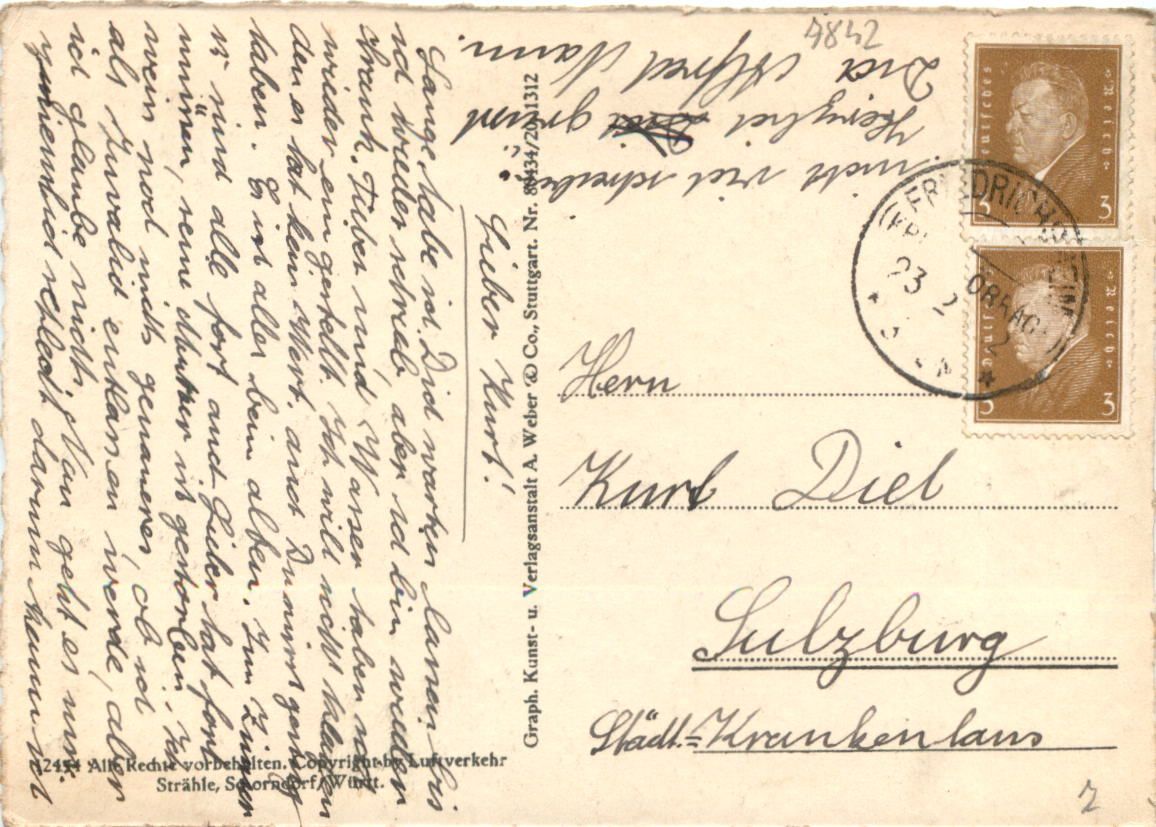 Lieber Kurt!
Lange habe ich Dich warten lassen bis
ich wieder schrieb, aber ich bin wieder
krank. Fieber und Wasser haben sich
wieder eingestellt. Ich will nicht klagen
den es hat kein Wert, auch Du wirst genug
haben. Es ist alles beim alten. Im Zimer
15 sind alle fort auch hat fort
müssen, seine Mutter ist gestorben. Ich
weis noch nichts genaueres, ob ich
als Invalid entlassen werde, aber
ich glaube nichts. Nun geht es mir
ziemlich schlecht darum kann ich
nicht viel schreiben.
Herzlich grüsst
Dich Alfred Nann.
Graph. Kunst- u. Verlagsanstalt A. Weber & Co., Stuttgart. Nr. 80434/20 1312
12454 Alle Rechte vorbehalten. Copyright by Luftverkehr
Strähle, Schorndorf/Württ.
4842
Deutsches Reich
3 3
Deutsches Reich
3 3
FRIEDRICHSHEIM
LÖRRACH
23 2
Herrn
Kurt Diel
Sulzburg
Städt.=Krankenhaus